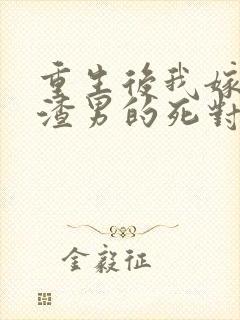 重生後我嫁
渣男的死對
金毅征